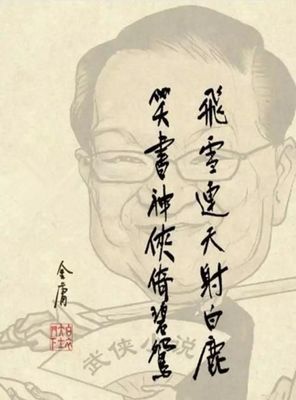 飛雪連天射白鹿
笑書神俠倚碧鴛
金庸
武侠小说